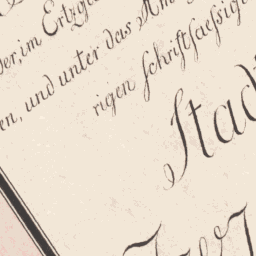 der, im Ertzge
en, und unter das Am
rigen schriftsaessige
Stad